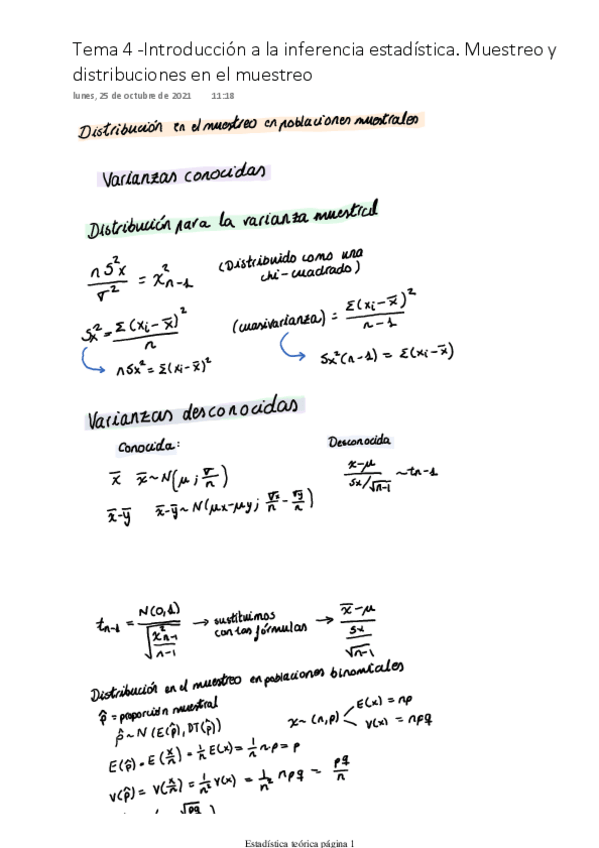 Tema 4 -Introducción a la inferencia estadística. Muestreo y
distribuciones en el muestreo
lunes, 25 de octubre de 2021 11:18
Distribución en el muestreo en poblaciones muestrales
Varianzas conocidas
Distribución para la varianza muestral
nS²x / σ² = χ²n-1 (Distribuido como una chi-cuadrado)
Sx² = Σ(xi-x̄)² / n (cuasivarianza) = Σ(xi-x̄)² / n-1
nSx² = Σ(xi-x̄)² Sx²(n-1) = Σ(xi-x̄)
Varianzas desconocidas
Conocida: Desconocida
x̄ x̄~N(μ; σ/n) x-μ / Sx/√n-1 ~tn-1
x̄-ȳ x̄-ȳ~N(μx-μy;
tn-1 = N(0,1) / √(χ²n-1 / n-1) → sustituimos con las fórmulas → x̄-μ / Sx / √n-1
Distribución en el muestreo en poblaciones binomiales
p̂ = proporción muestral
p̂~N(E(p̂), DT(p̂)) x~(n,p) E(x) = np
V(x) = npq
E(p̂) = E(x/n) = 1/n E(x) = 1/n np = p
V(p̂) = V(x/n) = 1/n² V(x) = 1/n² npq = pq/n
Estadística teórica página 1